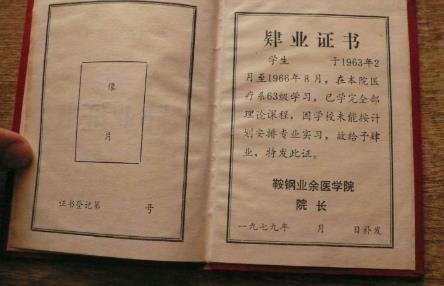 像
片
证书登记第 号
肄业证书
学生 于1963年2
月至1966年8月，在本院医
疗系63级学习，已学完全部
理论课程，因学校未能按计
划安排专业实习，故给予肆
业，特发此证。
鞍钢业余医学院
院 长
一九七九年 月 日补发